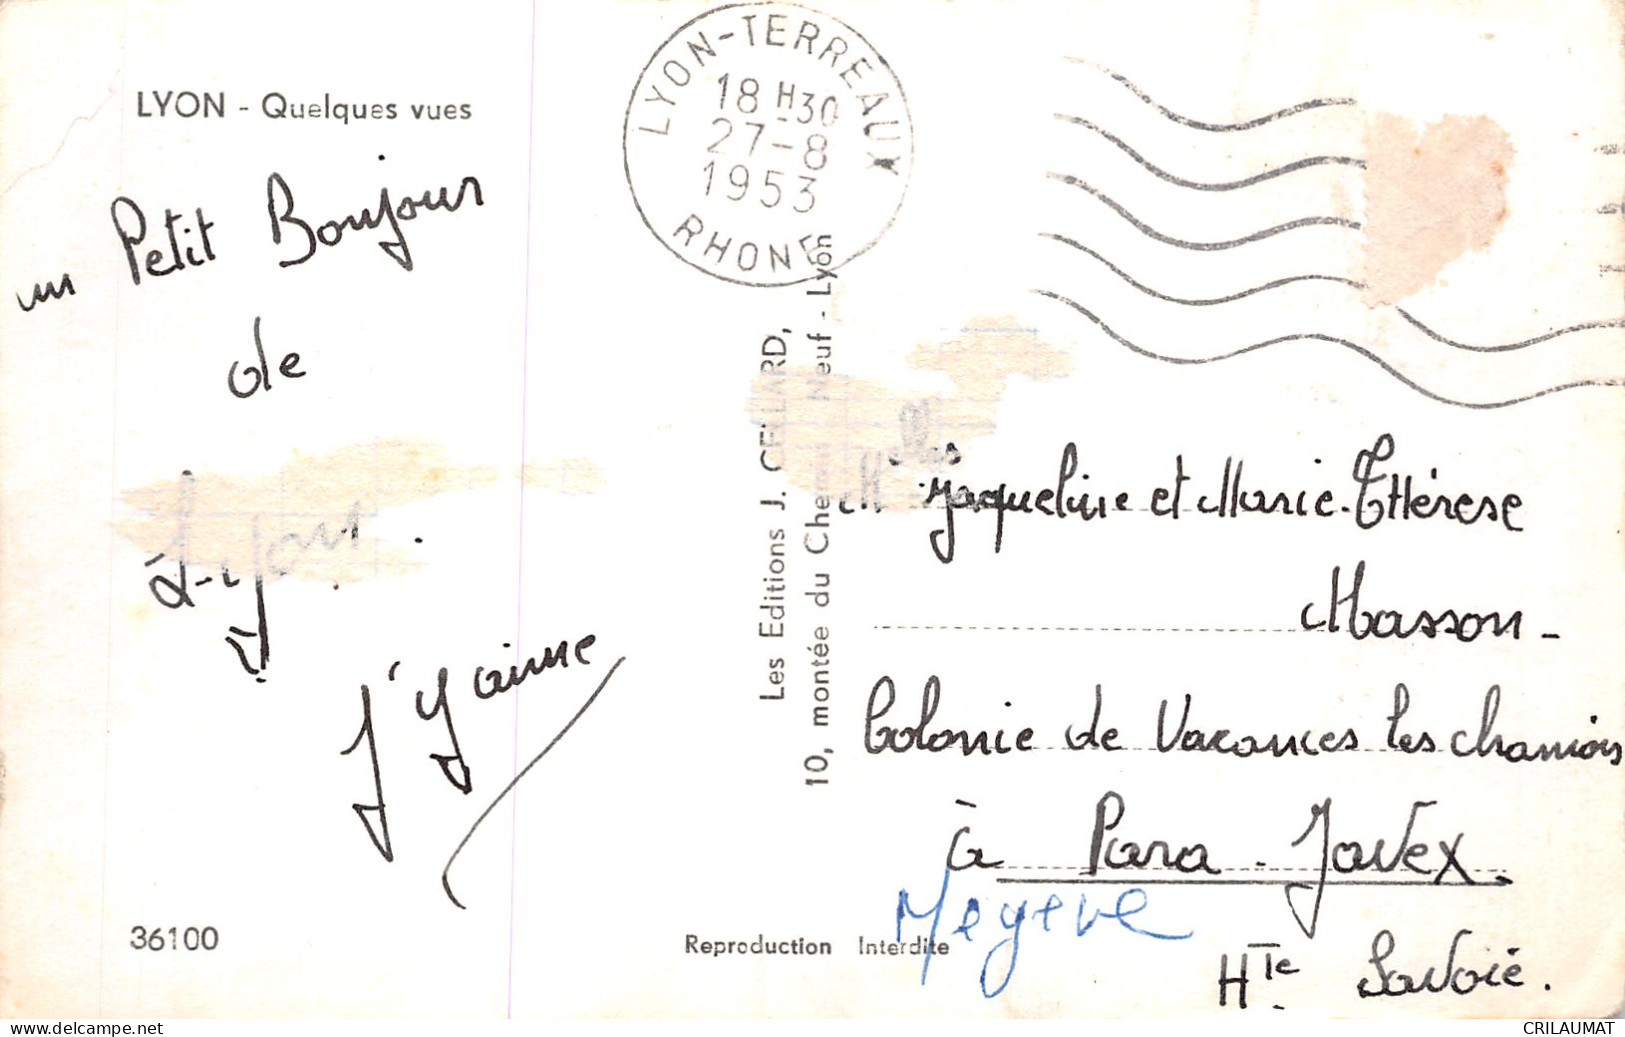 LYON - Quelques vues
un Petit Bonjour
de
Lyon.
J'y aime
36100
LYON-TERREAUX
18 H30
27-8
1953
RHONE
Les Editions J. CELLARD,
10, montée du Chemin Neuf - Lyon
Reproduction Interdite
Melles Jaqueline et Marie-Thérese
Masson-
Colonie de Vacances les chamois
à Para-Javex.
Megeve
Hte Savoie.
CRILAUMAT